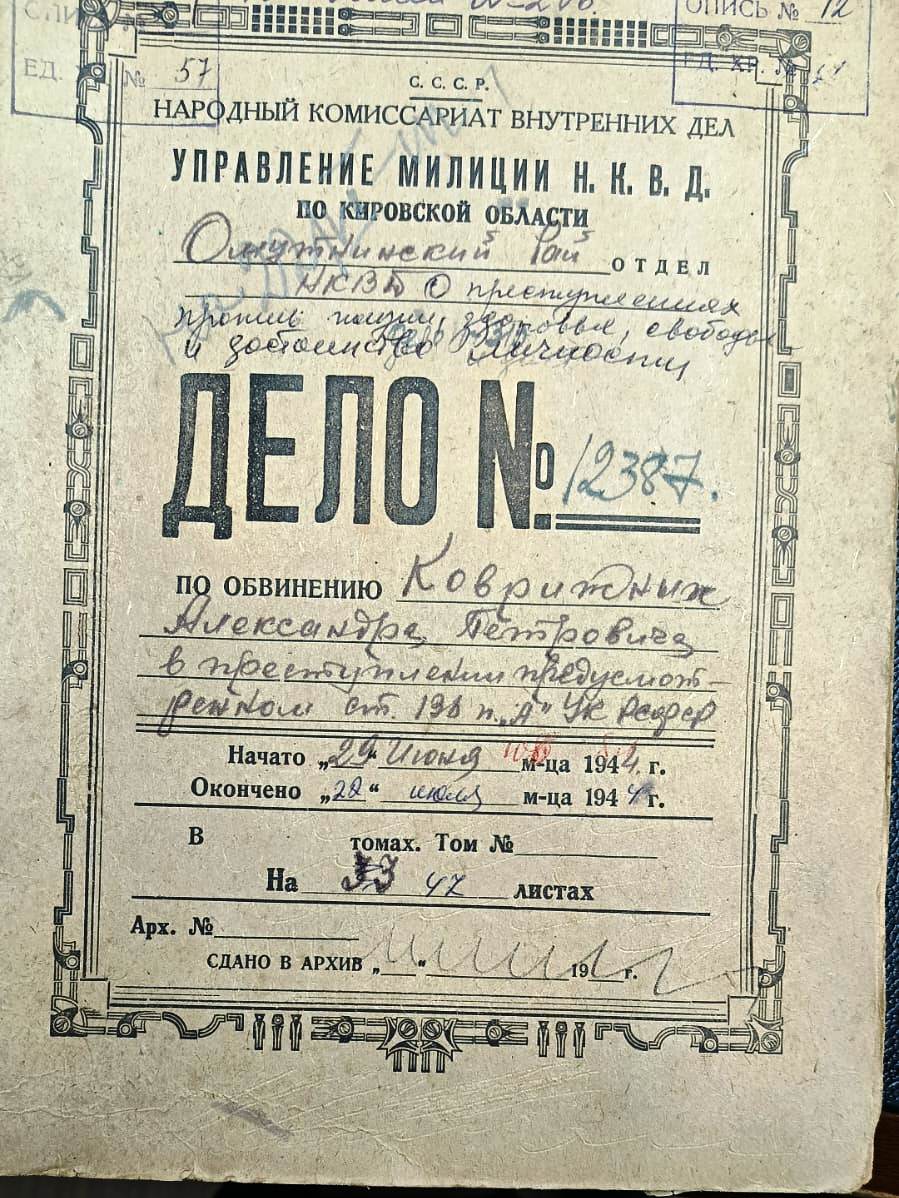 ОПИСЬ № 12
ЕД. № 57
ЕД. ХР. №
С. С. С. Р.
НАРОДНЫЙ КОМИССАРИАТ ВНУТРЕННИХ ДЕЛ
УПРАВЛЕНИЕ МИЛИЦИИ Н. К. В. Д.
ПО КИРОВСКОЙ ОБЛАСТИ
Омутнинский Рай ОТДЕЛ
НКВД О преступлениях
против жизни, здоровья, свободы
и достоинства личности
ДЕЛО № 12387.
ПО ОБВИНЕНИЮ Коврижных
Александра Петровича
в преступлении предусмот-
ренном ст. 136 п. „А" УК РСФСР
Начато „29" Июня м-ца 1944 г.
Окончено „22" июля м-ца 1944 г.
В томах. Том №
На 47 листах
Арх. №
СДАНО В АРХИВ „ " 19 г.